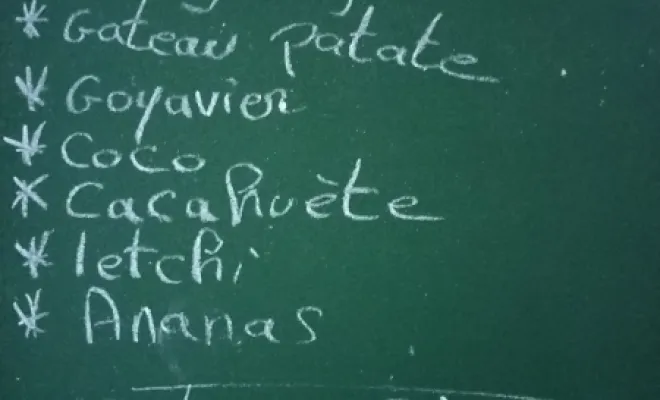 * Gateau patate
* Goyavier
* Coco
* Cacahuète
* letchi
* Ananas